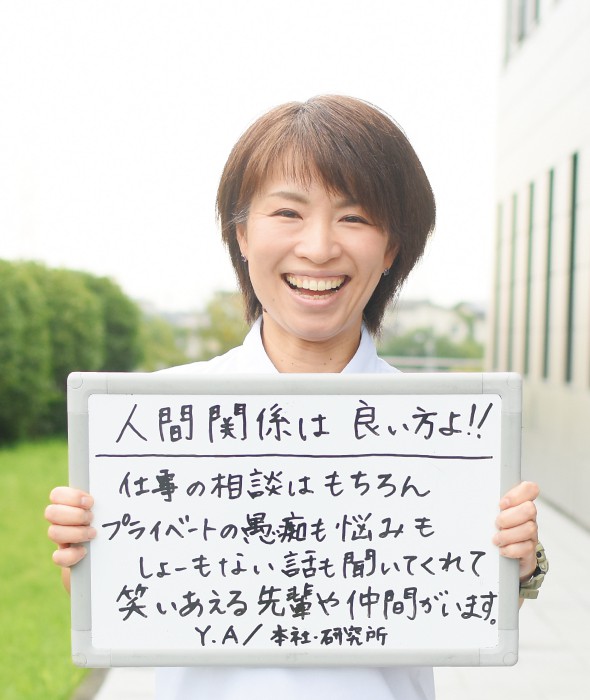 人間関係は 良い方よ!!
仕事の相談はもちろん
プライベートの愚痴も悩みも
しょーもない話も聞いてくれて
笑いあえる先輩や仲間がいます。
Y.A/本社・研究所